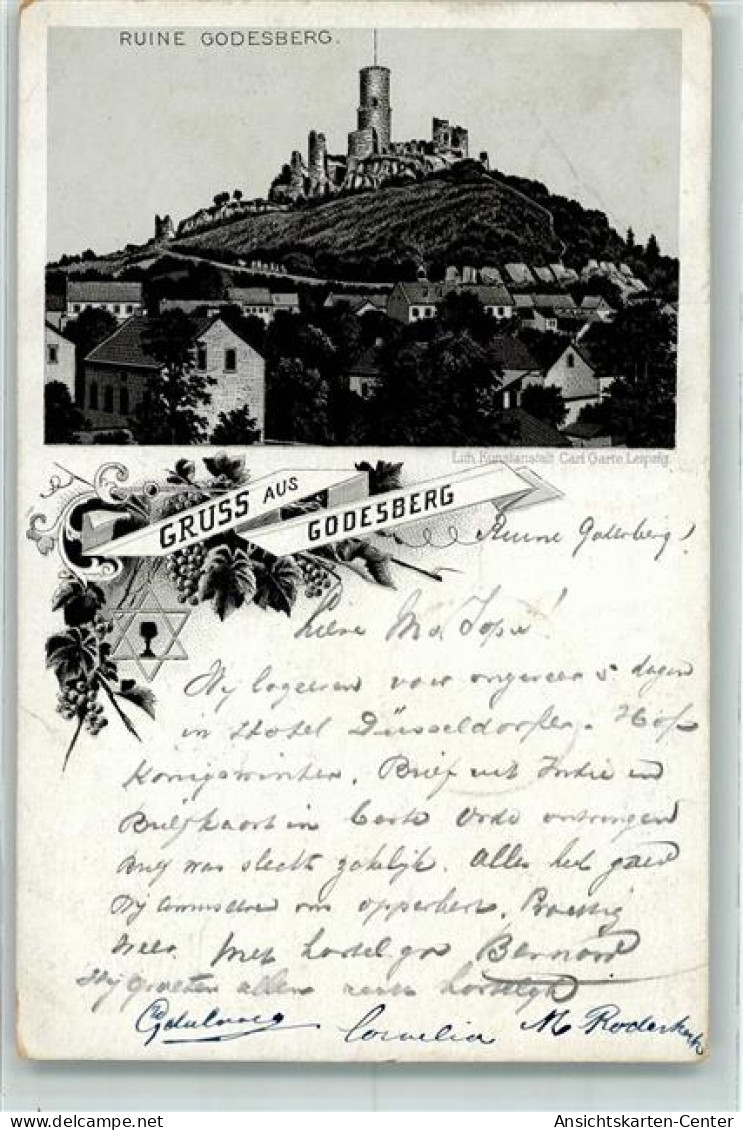 RUINE GODESBERG.
Lith. Kunstanstalt Carl Garte Leipzig
GRUSS AUS
GODESBERG
Ruine Goderberg!
Lieve
Wij logeeren voor ongeveer 5 dagen
in Hotel Düsseldorfer-Hof
Königswinter. Brief uit Indie en
Briefkaart in beste orde ontvangen
Brief was slecht zakelijk. Alles het goed
Wij amuseeren ons opperbest. Prachtig
weer. Met hartel. gr. Bernard
Wij groeten allen zeer hartelijk
Cornelia M. Roderkerk
delcampe.net
Ansichtskarten-Center